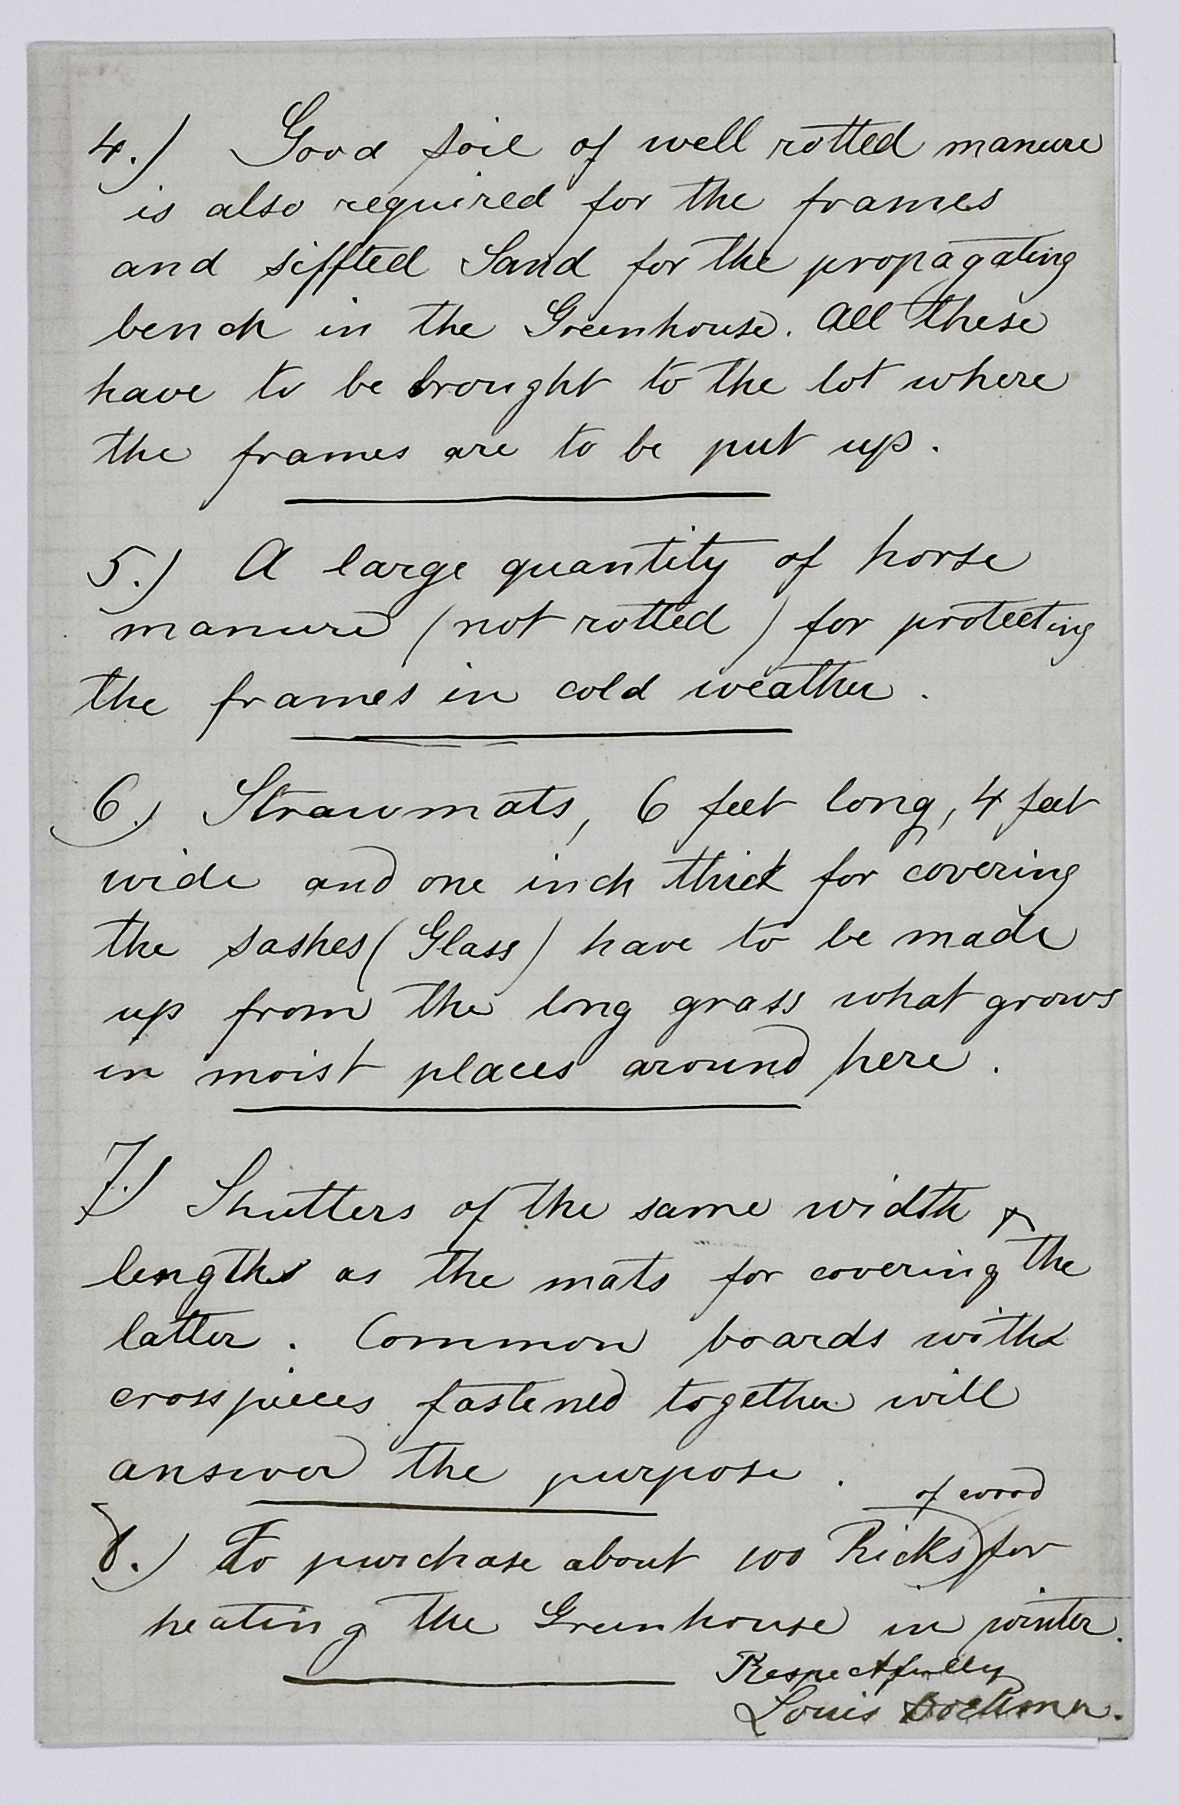 4.) Good soil of well rotted manure
is also required for the frames
and siffted Sand for the propagating
bench in the Greenhouse. All these
have to be brought to the lot where
the frames are to be put up.
5.) A large quantity of horse
manure (not rotted) for protecting
the frames in cold weather.
6.) Strawmats, 6 feet long, 4 feet
wide and one inch thick for covering
the sashes (Glass) have to be made
up from the long grass what grows
in moist places around here.
7.) Shutters of the same width &
lengths as the mats for covering the
latter. Common boards with
crosspieces fastened together will
answer the purpose.
of wood
8.) To purchase about 100 Ricks for
heating the Greenhouse in winter.
Respectfully
Louis Boehmer.